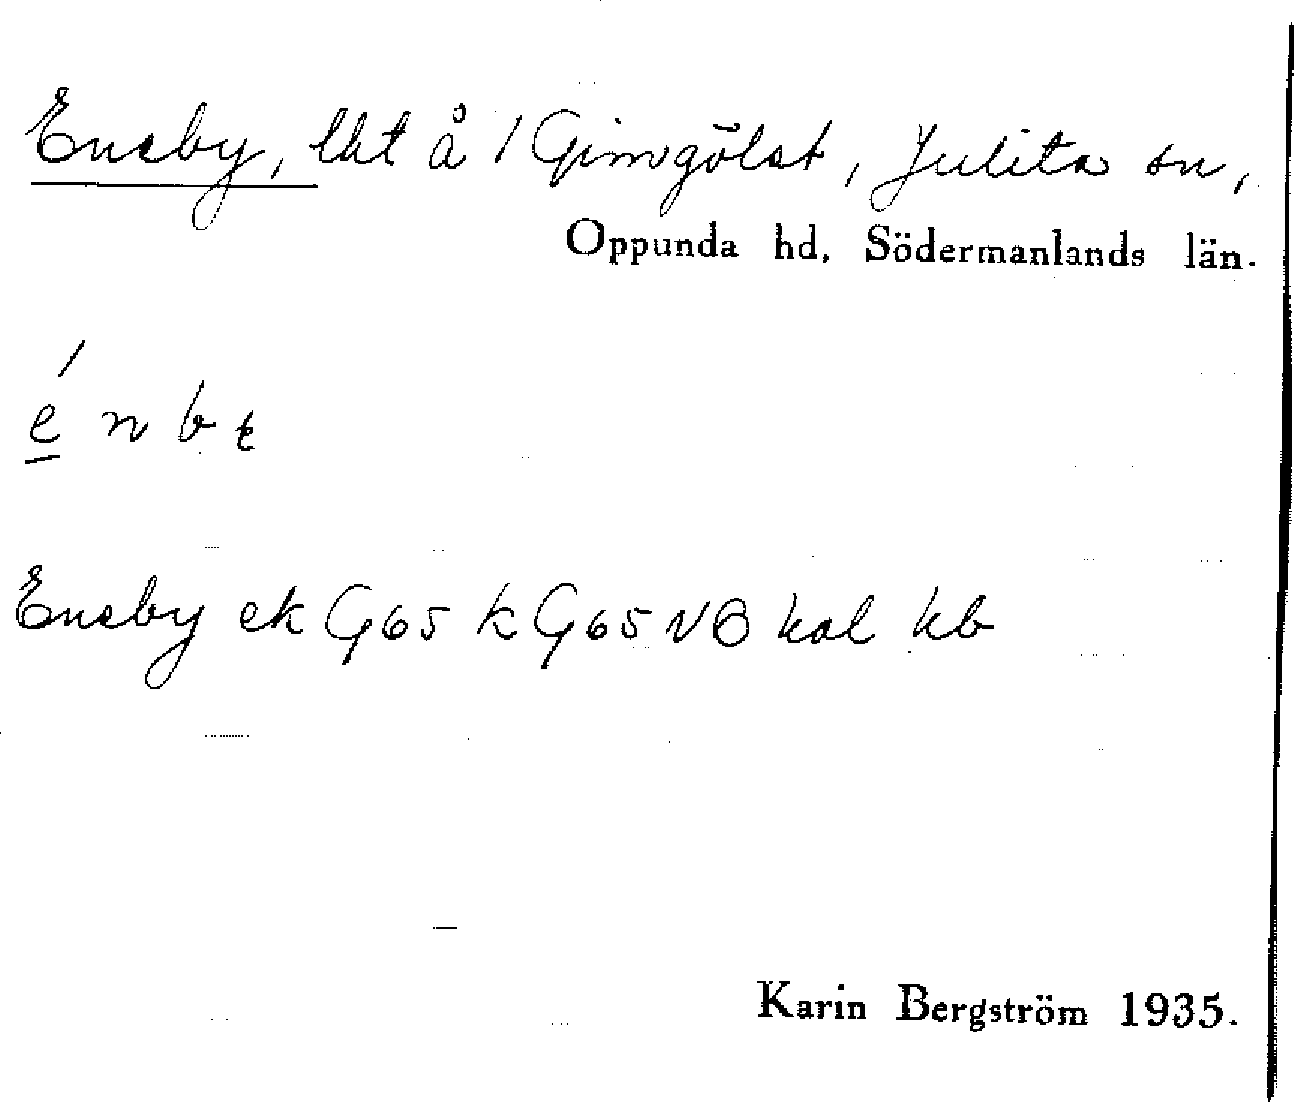 Eneby, lht å 1 Gimgölst, Julita sn,
Oppunda hd, Södermanlands län.
é n b
Eneby ek G65 k G65 NB kal kb
Karin Bergström 1935.